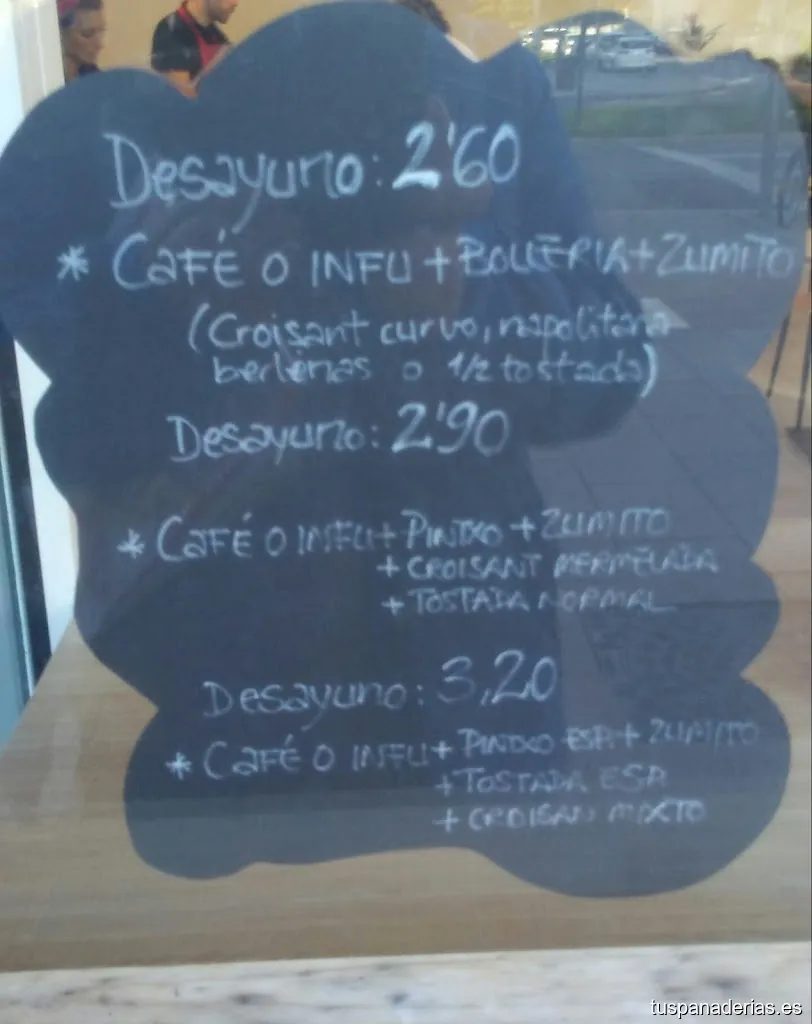 Desayuno: 2'60
* CAFÉ O INFU + BOLLERIA + ZUMITO
(Croisant curvo, napolitana
berlenas o 1/2 tostada)
Desayuno: 2'90
* CAFÉ O INFU + PINTXO + ZUMITO
+ CROISANT MERMELADA
+ TOSTADA NORMAL
Desayuno: 3,20
* CAFÉ O INFU + PINTXO ESP. + ZUMITO
+ TOSTADA ESP.
+ CROISAN MIXTO
tuspanaderias.es